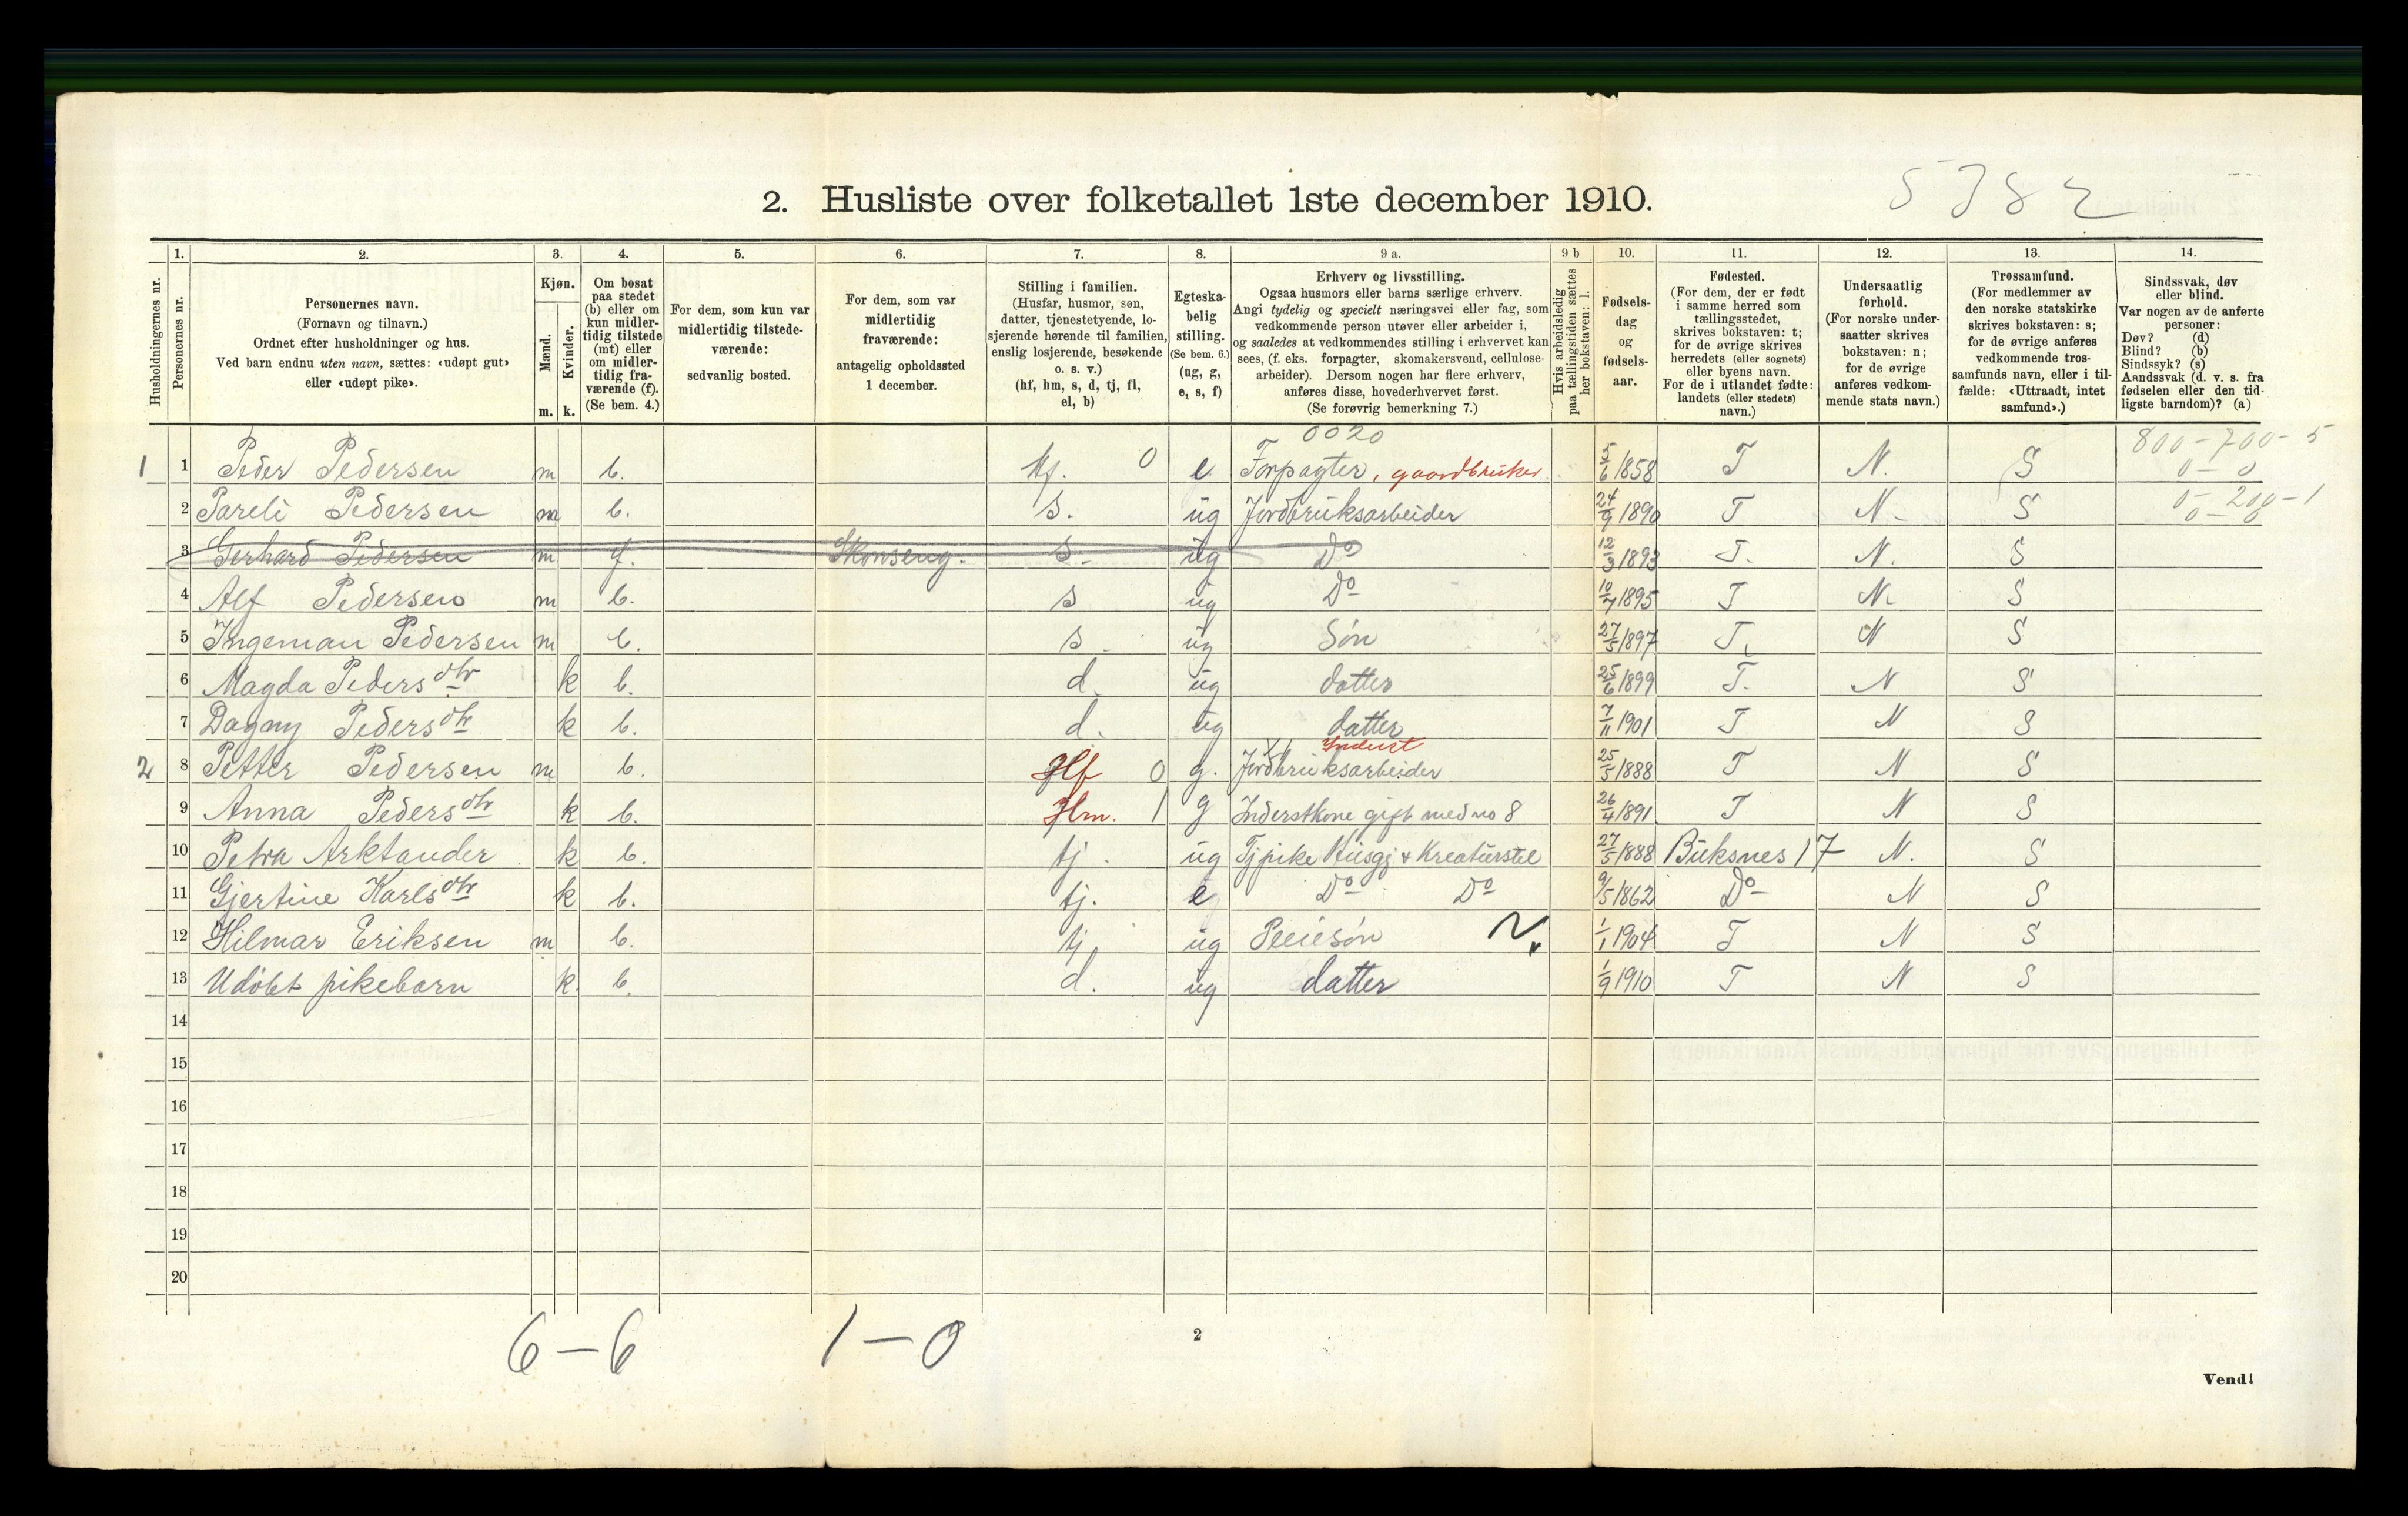 5382
2. Husliste over folketallet 1ste december 1910.
Husholdningernes nr.
1.
Personernes nr.
2.
Personernes navn.
(Fornavn og tilnavn.)
Ordnet efter husholdninger og hus.
Ved barn endnu uten navn, sættes: «udøpt gut»
eller «udøpt pike».
3.
Kjøn.
Mænd.
Kvinder.
m. k.
4.
Om bosat
paa stedet
(b) eller om
kun midler-
tidig tilstede
(mt) eller
om midler-
tidig fra-
værende (f).
(Se bem. 4.)
5.
For dem, som kun var
midlertidig tilstede-
værende:
sedvanlig bosted.
6.
For dem, som var
midlertidig
fraværende:
antagelig opholdssted
1 december.
7.
Stilling i familien.
(Husfar, husmor, søn,
datter, tjenestetyende, lo-
sjerende hørende til familien,
enslig losjerende, besøkende
o. s. v.)
(hf, hm, s, d, tj, fl,
el, b)
8.
Egteska-
belig
stilling.
(Se bem. 6.)
(ug, g,
e, s, f)
9 a.
Erhverv og livsstilling.
Ogsaa husmors eller barns særlige erhverv.
Angi tydelig og specielt næringsvei eller fag, som
vedkommende person utøver eller arbeider i,
og saaledes at vedkommendes stilling i erhvervet kan
sees, (f. eks. forpagter, skomakersvend, cellulose-
arbeider). Dersom nogen har flere erhverv,
anføres disse, hovederhvervet først.
(Se forøvrig bemerkning 7.)
9 b
Hvis arbeidsledig
paa tællingstiden sættes
her bokstaven: l.
10.
Fødsels-
dag
og
fødsels-
aar.
11.
Fødested.
(For dem, der er født
i samme herred som
tællingsstedet,
skrives bokstaven: t;
for de øvrige skrives
herredets (eller sognets)
eller byens navn.
For de i utlandet fødte:
landets (eller stedets)
navn.)
12.
Undersaatlig
forhold.
(For norske under-
saatter skrives
bokstaven: n;
for de øvrige
anføres vedkom-
mende stats navn.)
13.
Trossamfund.
(For medlemmer av
den norske statskirke
skrives bokstaven: s;
for de øvrige anføres
vedkommende tros-
samfunds navn, eller i til-
fælde: «Uttraadt, intet
samfund».)
14.
Sindssvak, døv
eller blind.
Var nogen av de anførte
personer:
Døv? (d)
Blind? (b)
Sindssyk? (s)
Aandssvak (d. v. s. fra
fødselen eller den tid-
ligste barndom)? (a)
0020
800-700-5
1 1 Peder Pedersen m b. hf. 0 e Forpagter, gaardbruker 5/6 1858 T N. S 0-0
0-200-1
2 Pareli Pedersen m b. s. ug Jordbruksarbeider 24/9 1890 T N. S 0-0
3 Gerhard Pedersen m f. Skonseng. s. ug Do 12/3 1893 T. N. S
4 Alf Pedersen m b. s ug Do 10/7 1895 T N. S
5 Ingeman Pedersen m b. s. ug Søn 27/5 1897 T. N S
6 Magda Pedersdtr k b. d. ug datter 25/6 1899 T. N S
7 Dagny Pedersdtr k b. d. ug datter 7/11 1901 T N S
Inderst
2 8 Petter Pedersen m b. Hf 0 g. Jordbruksarbeider 25/5 1888 T N S
9 Anna Pedersdtr k b. Hm. 1 g Inderstkone gift med no 8 26/4 1891 T N S
10 Petra Arktander k b. tj. ug Tjpike Husgj & Kreaturstel 27/5 1888 Buksnes 17 N. S
11 Gjertine Karlsdtr k b. tj. e Do Do 9/5 1862 Do N S
12 Hilmar Eriksen m b. tj ug Pleiesøn 1/1 1904 T N S
13 Udøbt pikebarn k. b. d. ug datter 1/9 1910 T N S
14
15
16
17
18
19
20
6-6 1-0
2
Vend!